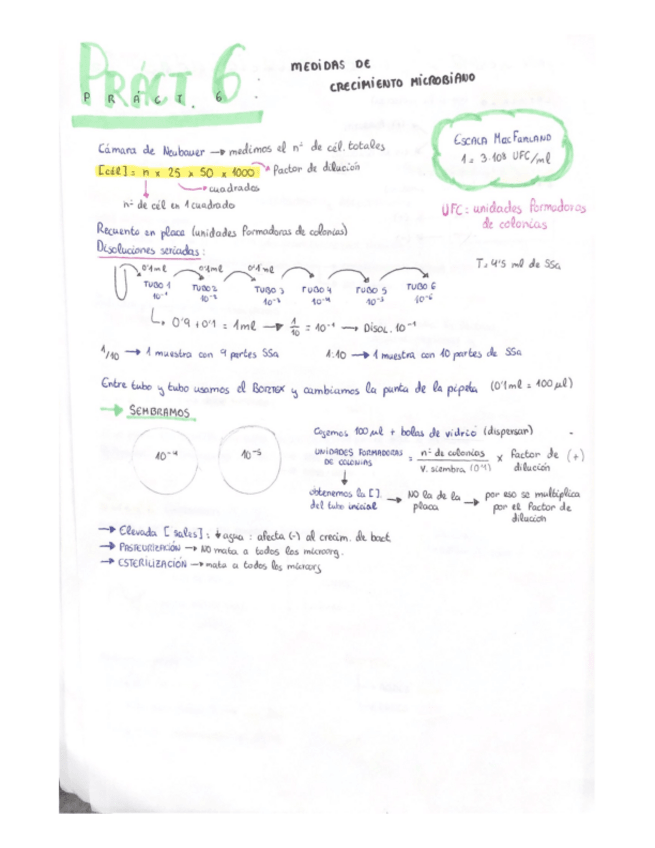 PRÁCT 6:
P R Á C T . 6
MEDIDAS DE
CRECIMIENTO MICROBIANO
ESCALA MacFARLAND
1 = 3·10⁸ UFC/ml
Cámara de Neubauer → medimos el nº de cél. totales
[cél] = n x 25 x 50 x 1000 → Factor de dilución
cuadrados
nº de cél en 1 cuadrado
UFC: unidades formadoras
de colonias
Recuento en placa (unidades formadoras de colonias)
Disoluciones seriadas:
0'1ml 0'1ml 0'1ml
T: 4'5 ml de SSa
TUBO 1 TUBO 2 TUBO 3 TUBO 4 TUBO 5 TUBO 6
10⁻¹ 10⁻² 10⁻³ 10⁻⁴ 10⁻⁵ 10⁻⁶
0'9 + 0'1 = 1ml → 1/10 = 10⁻¹ → Disol. 10⁻¹
1/10 → 1 muestra con 9 partes SSa 1:10 → 1 muestra con 10 partes de SSa
Entre tubo y tubo usamos el BORTEX y cambiamos la punta de la pipeta (0'1ml = 100µl)
→ SEMBRAMOS
10⁻⁴ 10⁻⁵
Cogemos 100µl + bolas de vidrio (dispersar)
UNIDADES FORMADORAS DE COLONIAS = nº de colonias / V. siembra (0'1) x Factor de dilución (+)
obtenemos la [ ] del tubo inicial → NO la de la placa → por eso se multiplica por el factor de dilución
→ Elevada [sales]: ↓agua: afecta (-) al crecim. de bact
→ PASTEURIZACIÓN → NO mata a todos los microorg.
→ ESTERILIZACIÓN → mata a todos los microorg